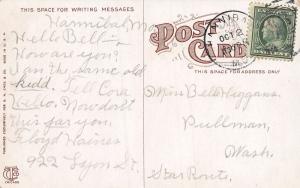 THIS SPACE FOR WRITING MESSAGES
Hannibal Mo
Hello Bell-
How are you?
I am the same old
kidd. Tell Cora
Hello. Now dont
this far you.
Floyd Haines
922 Lyon St.
POST CARD
THIS SPACE FOR ADDRESS ONLY
OCT 2
Miss Belle Higgans,
Pullman,
Wash.
Star Route.
CHICAGO